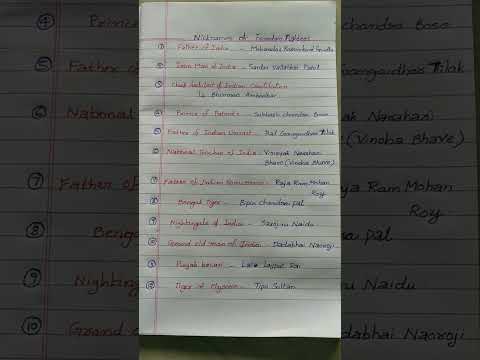 Nicknames of Freedom Fighters
① Father of India - Mohandas Karamchand Gandhi
② Iron Man of India - Sardar Vallabhbhai Patel
③ Chief Architect of Indian Constitution
Bhimrao Ambedkar
④ Prince of Patriots - Subhash Chandra Bose
⑤ Father of Indian Unrest - Bal Gangaadhar Tilak
⑥ National Teacher of India - Vinayak Narahari
Bhave (Vinoba Bhave)
⑦ Father of Indian Renaissance - Raja Ram Mohan
Roy
⑧ Bengal Tiger - Bipin Chandra Pal
⑨ Nightingale of India - Sarojini Naidu
⑩ Grand old man of India - Dadabhai Naoroji
Punjab kesari - Lala Lajpat Rai
Tiger of Mysore - Tipu Sultan
④ Prince
⑤ Father
⑥ National
⑦ Father of
⑧ Beng
⑨ Nighting
⑩ Grand o
chandra Bose
Gangaadhar Tilak
Narahari
(Vinoba Bhave)
ya Ram Mohan
Roy
Pal
u Naidu
adabhai Naoroji